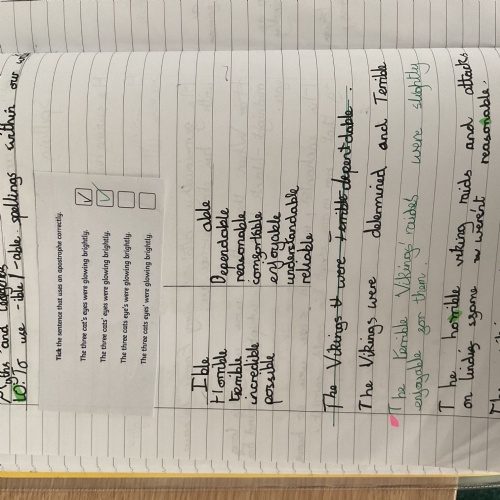 and
LO To use -ible / -able spellings within our
Tick the sentence that uses an apostrophe correctly.
The three cat's eyes were glowing brightly.
The three cats' eyes were glowing brightly.
The three cats eye's were glowing brightly.
The three cats eyes' were glowing brightly.
Ible able
Horrible Dependable
terrible reasonable
incredible comfortable
possible enjoyable
understandable
reliable
The Vikings were terrible
The Vikings were determined and Terrible
The terrible Vikings' raides were slightly
enjoyable for them
The horrible viking raids and attacks
on weren't reasonable.